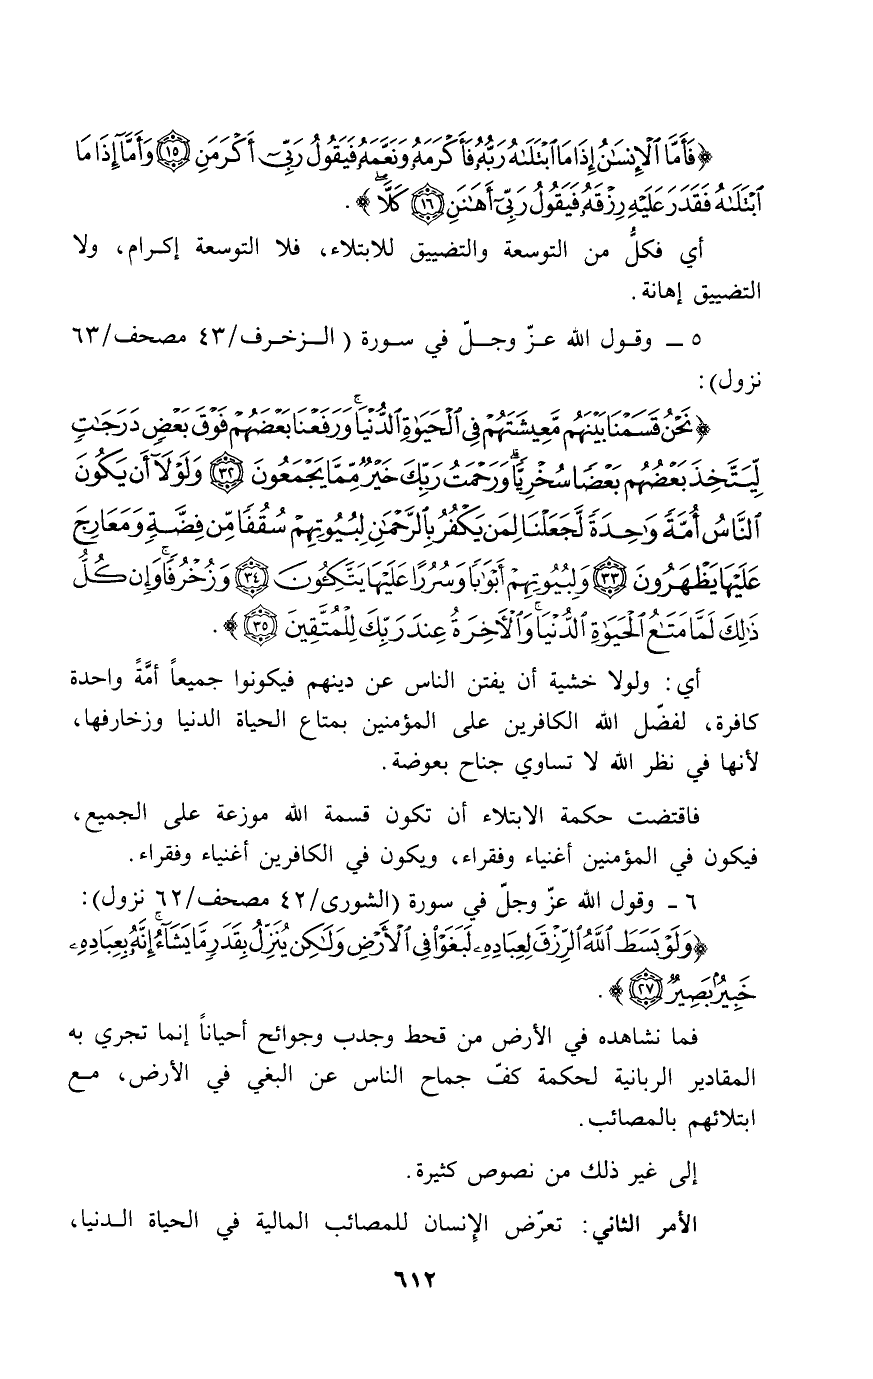 ﴿فَأَمَّا ٱلْإِنسَٰنُ إِذَا مَا ٱبْتَلَىٰهُ رَبُّهُۥ فَأَكْرَمَهُۥ وَنَعَّمَهُۥ فَيَقُولُ رَبِّىٓ أَكْرَمَنِ ١٥ وَأَمَّآ إِذَا مَا
ٱبْتَلَىٰهُ فَقَدَرَ عَلَيْهِ رِزْقَهُۥ فَيَقُولُ رَبِّىٓ أَهَٰنَنِ ١٦ كَلَّاۖ﴾.
أي فكلُّ من التوسعة والتضييق للابتلاء، فلا التوسعة إكرام، ولا
التضييق إهانة.
٥ ــ وقول الله عزّ وجلّ في سورة (الزخرف/٤٣ مصحف/٦٣
نزول):
﴿نَحْنُ قَسَمْنَا بَيْنَهُم مَّعِيشَتَهُمْ فِى ٱلْحَيَوٰةِ ٱلدُّنْيَاۚ وَرَفَعْنَا بَعْضَهُمْ فَوْقَ بَعْضٍ دَرَجَٰتٍ
لِّيَتَّخِذَ بَعْضُهُم بَعْضًا سُخْرِيًّاۗ وَرَحْمَتُ رَبِّكَ خَيْرٌ مِّمَّا يَجْمَعُونَ ٣٢ وَلَوْلَآ أَن يَكُونَ
ٱلنَّاسُ أُمَّةً وَٰحِدَةً لَّجَعَلْنَا لِمَن يَكْفُرُ بِٱلرَّحْمَٰنِ لِبُيُوتِهِمْ سُقُفًا مِّن فِضَّةٍ وَمَعَارِجَ
عَلَيْهَا يَظْهَرُونَ ٣٣ وَلِبُيُوتِهِمْ أَبْوَٰبًا وَسُرُرًا عَلَيْهَا يَتَّكِـُٔونَ ٣٤ وَزُخْرُفًاۚ وَإِن كُلُّ
ذَٰلِكَ لَمَّا مَتَٰعُ ٱلْحَيَوٰةِ ٱلدُّنْيَاۚ وَٱلْـَٔاخِرَةُ عِندَ رَبِّكَ لِلْمُتَّقِينَ ٣٥﴾.
أي: ولولا خشية أن يفتن الناس عن دينهم فيكونوا جميعاً أمَّةً واحدة
كافرة، لفضّل الله الكافرين على المؤمنين بمتاع الحياة الدنيا وزخارفها،
لأنها في نظر الله لا تساوي جناح بعوضة.
فاقتضت حكمة الابتلاء أن تكون قسمة الله موزعة على الجميع،
فيكون في المؤمنين أغنياء وفقراء، ويكون في الكافرين أغنياء وفقراء.
٦ ـ وقول الله عزّ وجلّ في سورة (الشورى/٤٢ مصحف/٦٢ نزول):
﴿وَلَوْ بَسَطَ ٱللَّهُ ٱلرِّزْقَ لِعِبَادِهِۦ لَبَغَوْا۟ فِى ٱلْأَرْضِ وَلَٰكِن يُنَزِّلُ بِقَدَرٍ مَّا يَشَآءُۚ إِنَّهُۥ بِعِبَادِهِۦ
خَبِيرٌۢ بَصِيرٌ ٢٧﴾.
فما نشاهده في الأرض من قحط وجدب وجوائح أحياناً إنما تجري به
المقادير الربانية لحكمة كفّ جماح الناس عن البغي في الأرض، مع
ابتلائهم بالمصائب.
إلى غير ذلك من نصوص كثيرة.
الأمر الثاني: تعرّض الإنسان للمصائب المالية في الحياة الدنيا،
٦١٢